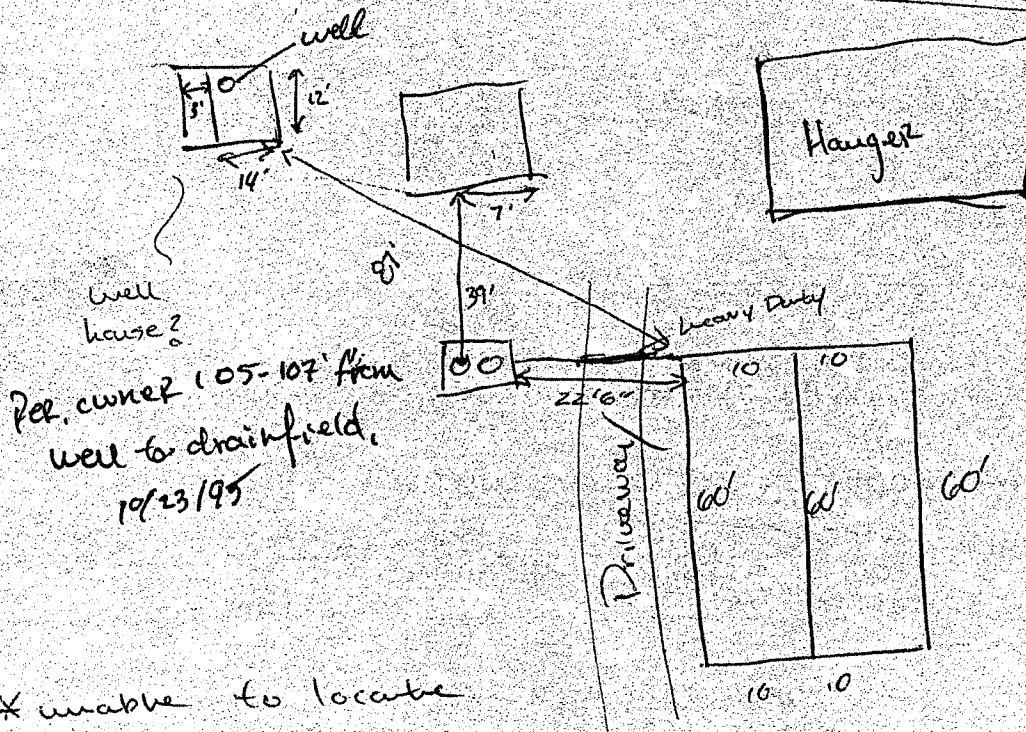 well
3'
12'
14'
7'
Hanger
well
house?
39'
Heavy Duty
Per. owner 105-107' from
well to drainfield.
10/23/95
22'6"
10
10
Driveway
60'
60'
60'
10
10
* unable to locate